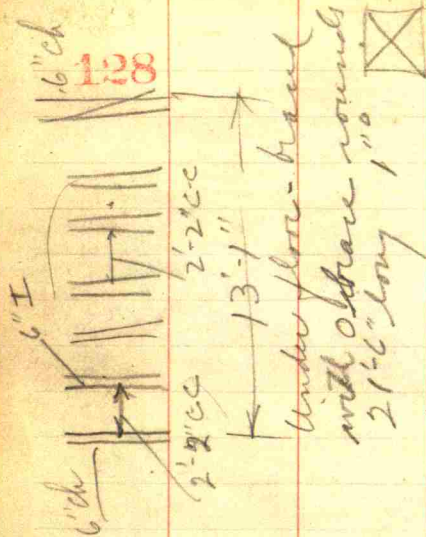 128
6"ch
6"I
6"ch
2'-2"cc
2'-2"cc
13'-1"
Under floor-braced
with brace rounds
21'-6" long 1"